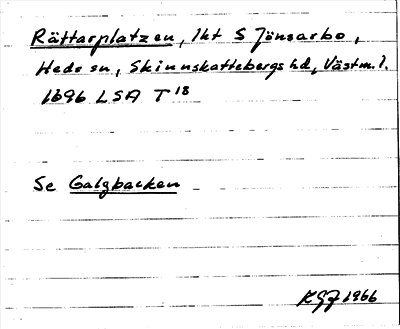 Rättarplatzen, lht S Jönsarbo,
Hed sn, Skinnskattebergs hd, Västm. l.
1696 LSA T 18
Se Galgbacken
KGJ 1966